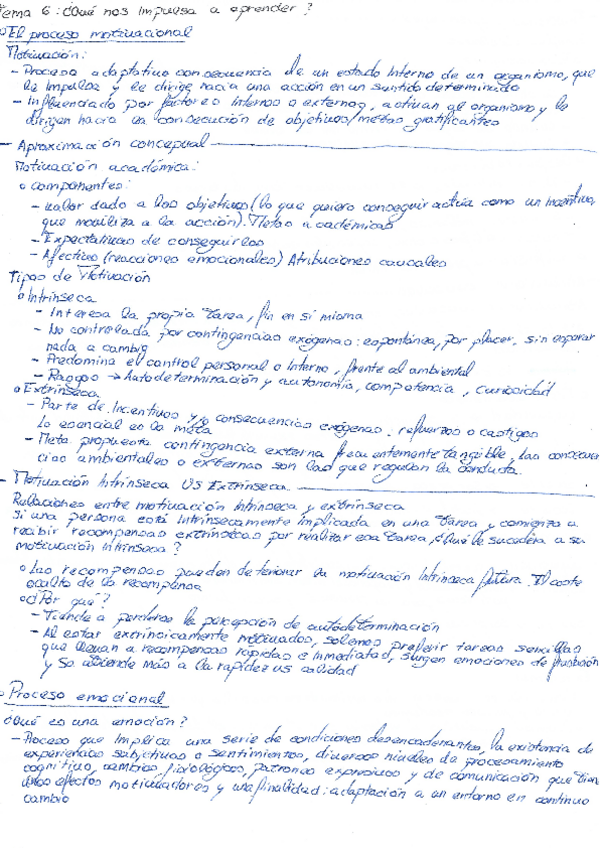 Tema 6: ¿Qué nos impulsa a aprender?
El proceso motivacional
Motivación:
- Proceso adaptativo consecuencia de un estado interno de un organismo, que
le impulsa y le dirige hacia una acción en un sentido determinado
- Influenciado por factores internos o externos, activan al organismo y le
dirigen hacia la consecución de objetivos/metas gratificantes
- Aproximación conceptual
Motivación académica:
o componentes:
- valor dado a los objetivos (lo que quiero conseguir actúa como un incentivo,
que moviliza a la acción). Metas académicas
- Expectativas de conseguirlos
- Afectivo (reacciones emocionales) Atribuciones causales
Tipos de Motivación
o Intrínseca
- Interesa la propia tarea, fin en si misma
- No controlada por contingencias exógenas: espontánea, por placer, sin esperar
nada a cambio
- Predomina el control personal o interno, frente al ambiental
- Rasgos → Autodeterminación y autonomía, competencia, curiosidad
o Extrínseca
- Parte de incentivos y/o consecuencias exógenas. refuerzos o castigos
Lo esencial es la meta
- Meta propuesta contingencia externa frecuentemente tangible, las consecuen
cias ambientales o externas son las que regulan la conducta.
- Motivación Intrínseca VS Extrínseca
Relaciones entre motivación intrínseca y extrínseca
Si una persona está intrínsecamente implicada en una tarea y comienza a
recibir recompensas extrínsecas por realizar esa tarea, ¿Qué le sucedería a su
motivación intrínseca?
o Las recompensas pueden deteriorar la motivación intrínseca futura. El coste
oculto de la recompensa
o ¿Por qué?
- Tiende a perderse la percepción de autodeterminación
- Al estar extrínsicamente motivados, solemos preferir tareas sencillas
que llevan a recompensas rápidas e inmediatas, surgen emociones de frustración
y se atiende más a la rapidez vs calidad
o Proceso emocional
¿Qué es una emoción?
- Proceso que implica una serie de condiciones desencadenantes, la existencia de
experiencias subjetivas o sentimientos, diversos niveles de procesamiento
cognitivo, cambios fisiológicos, patrones expresivos y de comunicación que tien
unos efectos motivadores y una finalidad: adaptación a un entorno en continuo
cambio